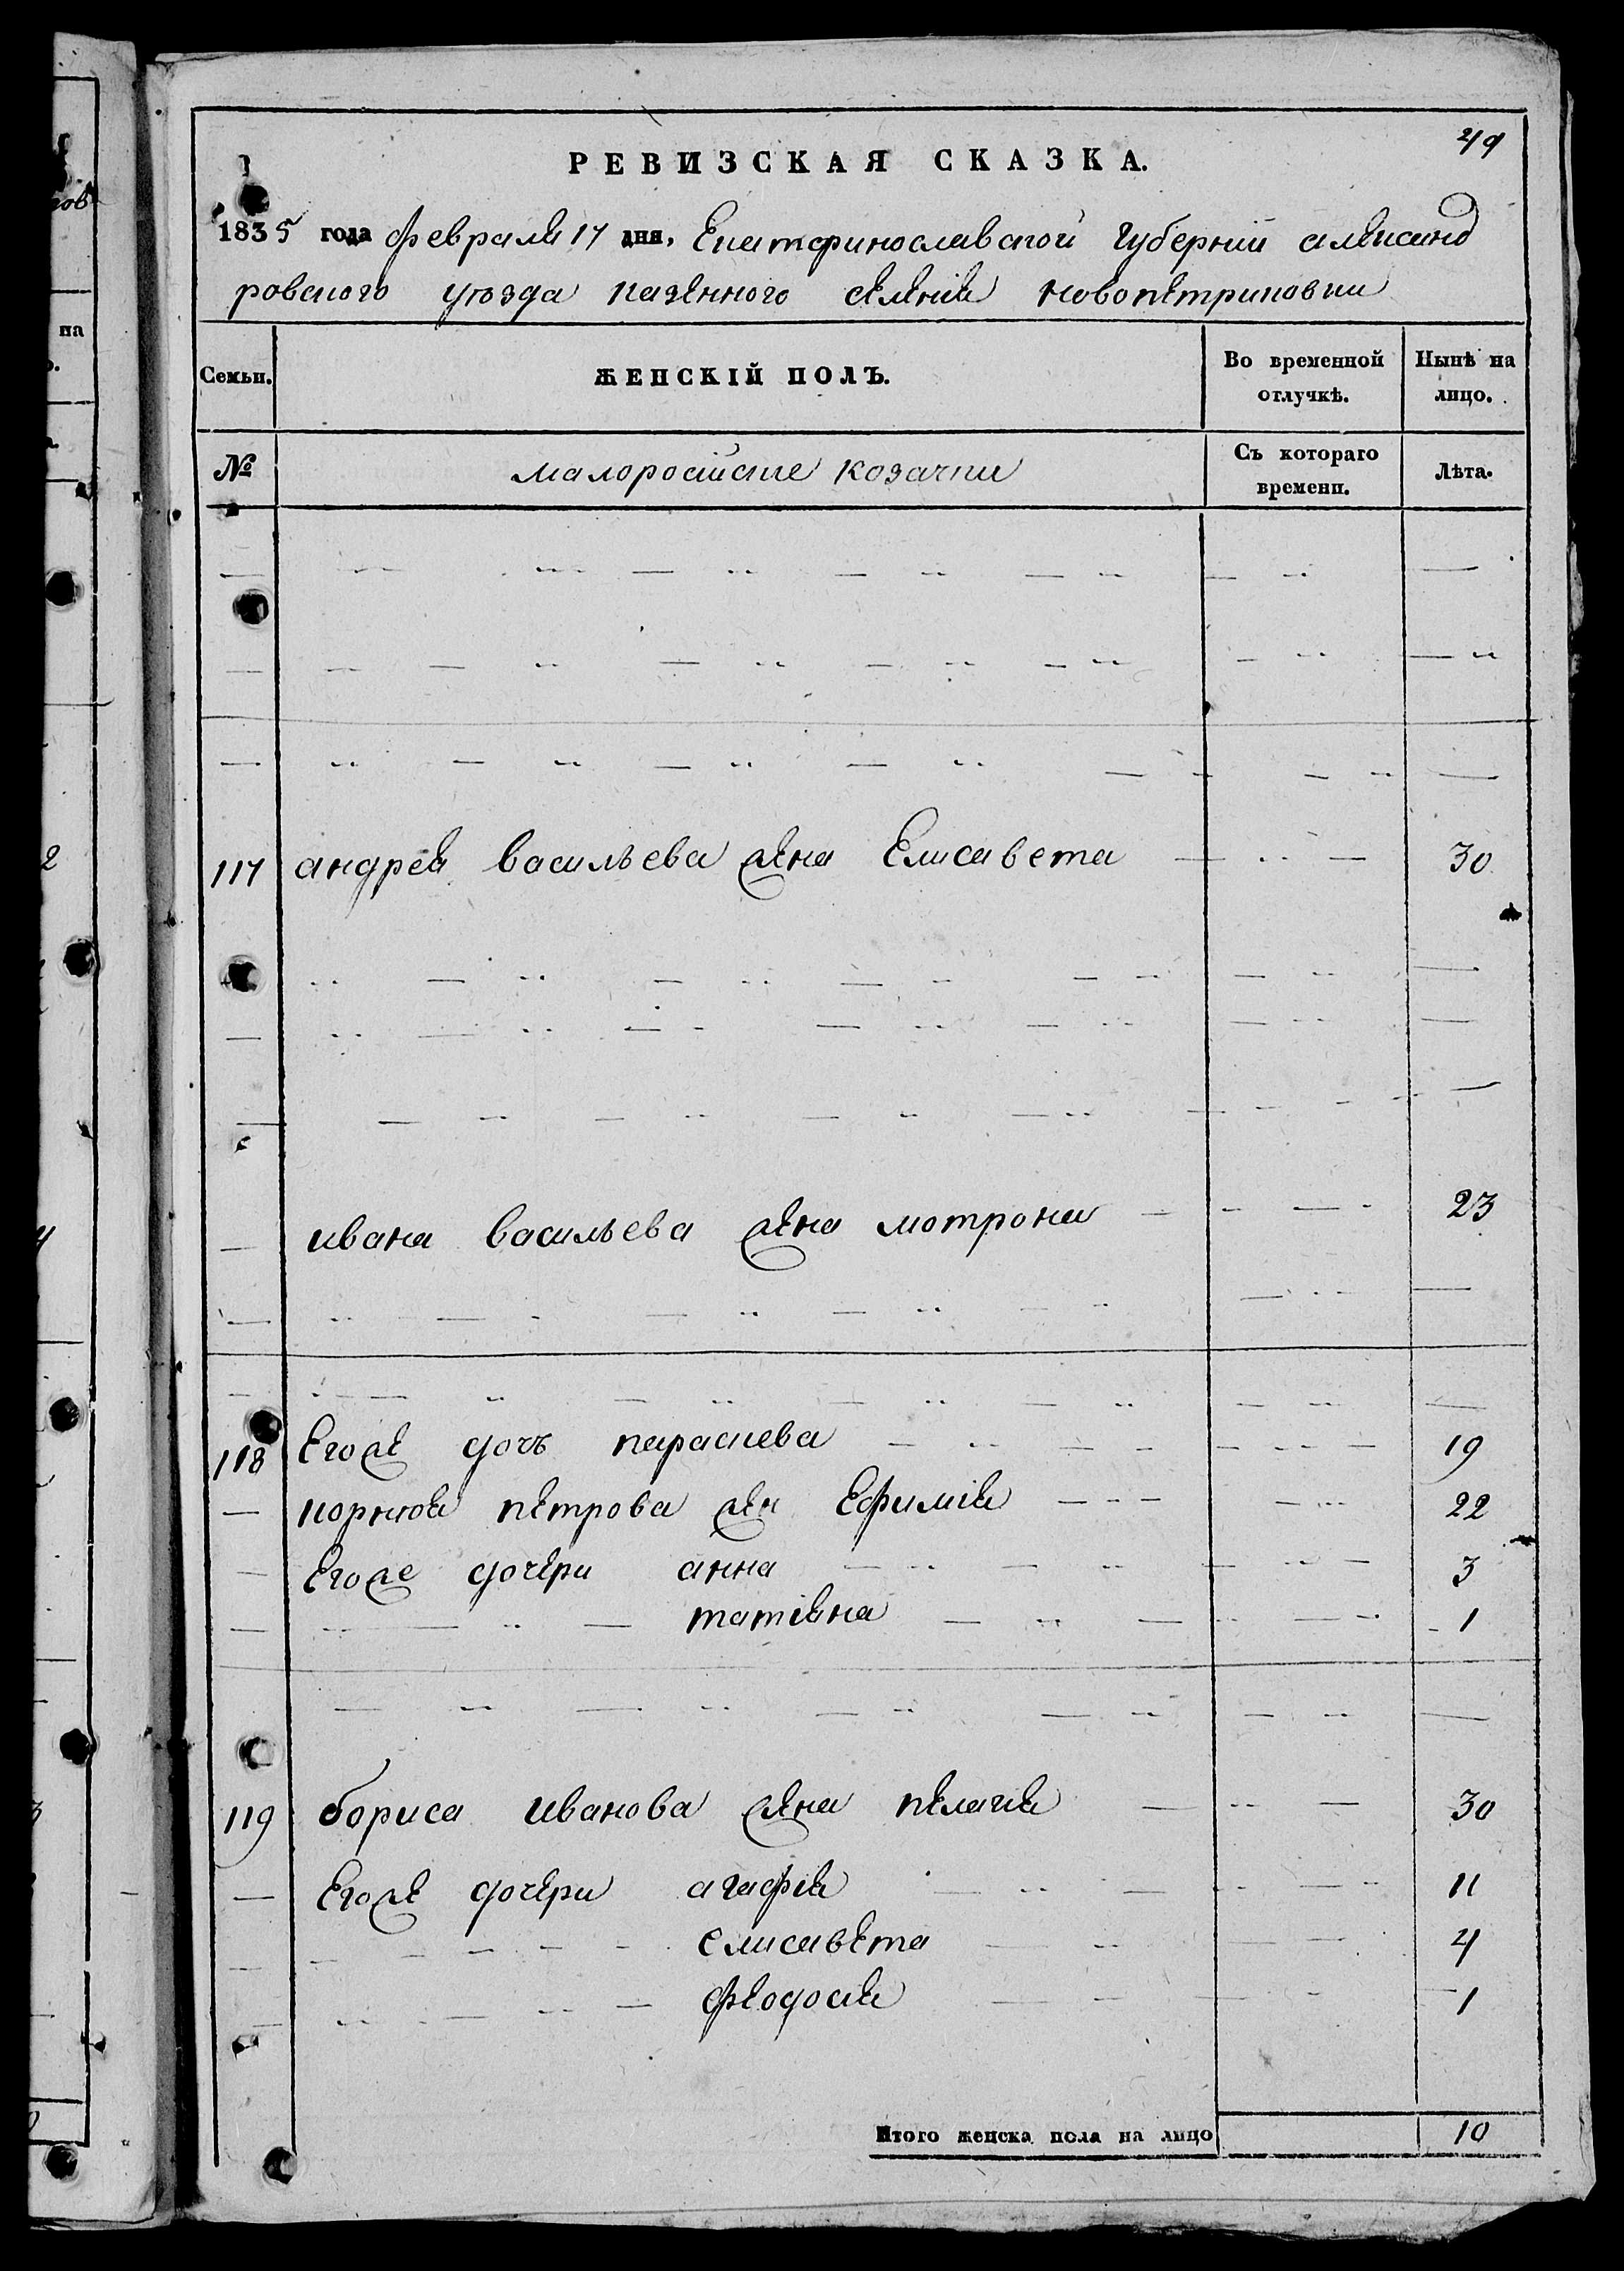 49
РЕВИЗСКАЯ СКАЗКА.
1835 года февраля 17 дня, Екатеринославской губернии александ
ровского уезда казенного селения новопетриковки
Семьи.
ЖЕНСКІЙ ПОЛЪ.
Во временной отлучкѣ.
Нынѣ на лицо.
№
малоросийские козачки
Съ котораго времени.
Лѣта.
117 андрея васильева жена Елисавета 30
ивана васильева жена мотрона 23
118 Егоже дочъ параскева 19
корнея петрова жен Ефимия 22
Егоже дочери анна 3
татияна 1
119 бориса иванова жена пелагия 30
Егоже дочери агафия 11
елисавета 4
феодосия 1
Итого женска пола на лицо 10